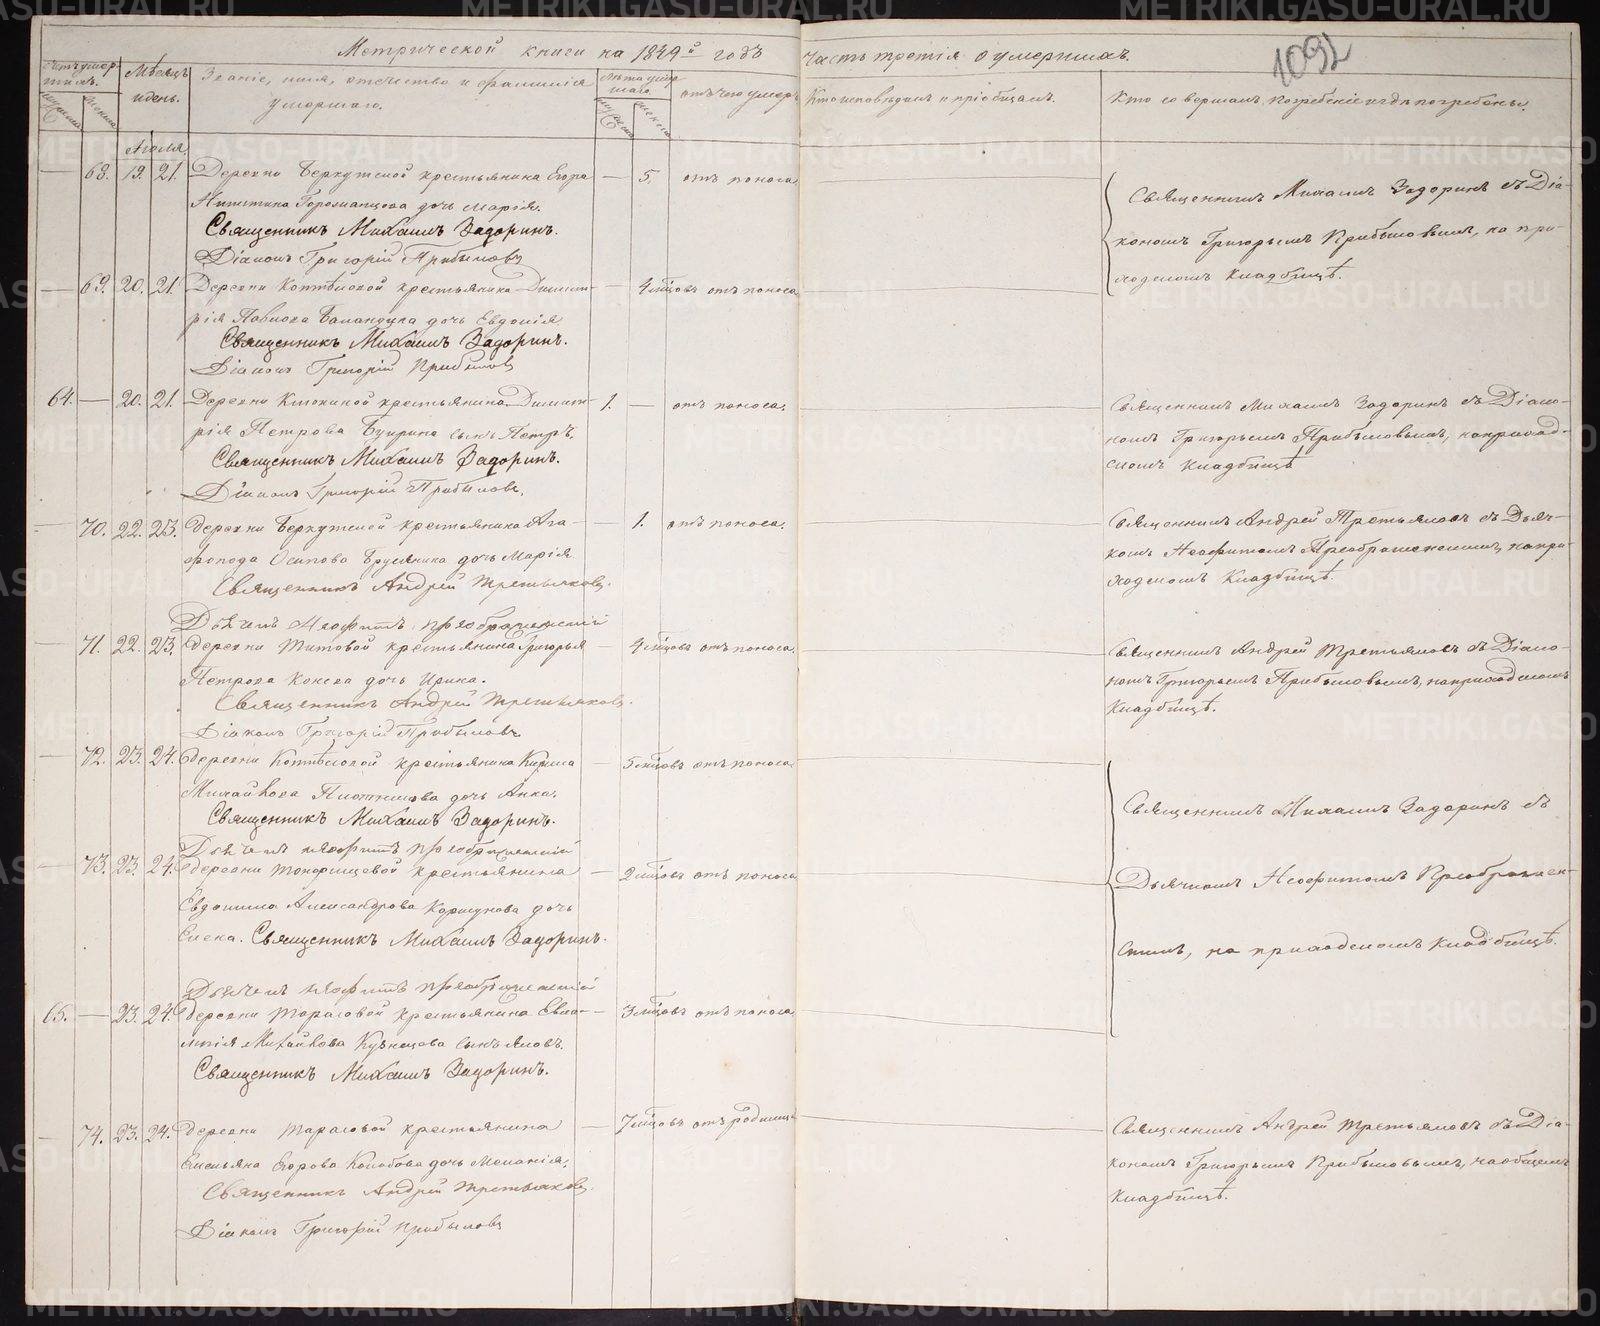 Метрической книги на 1849й годъ
Часть третія о умершихъ.
1092
Счетъ умер
шихъ.
Мѣсяцъ
и день.
Званіе, имя, отечество и фамилія
умершаго.
Лѣта умер
шаго.
отъ чего умеръ
Кто исповѣдалъ и пріобщалъ.
Кто совершалъ погребеніе и гдѣ погребены.
Іюля
— 68. 19. 21. Деревни Беркутской крестьянина Егора — 5. отъ поноса
Никитина дочь Марія.
Священникъ Михаилъ Задоринъ.
Діаконъ Григорій Прибыловъ
Священникъ Михаилъ Задоринъ съ Діа-
кономъ Григорьемъ Прибыловымъ, на при-
ходскомъ кладбищѣ.
— 69. 20. 21. Деревни крестьянина Димит- — 4 мѣсцовъ отъ поноса
рія Павлова дочь Евдокія
Священникъ Михаилъ Задоринъ.
Діаконъ Григорій Прибыловъ
64. — 20. 21. Деревни крестьянина Димит- 1. — отъ поноса.
рія Петрова сынъ Петръ.
Священникъ Михаилъ Задоринъ.
Діаконъ Григорій Прибыловъ.
Священникъ Михаилъ Задоринъ съ Діако-
номъ Григорьемъ Прибыловымъ, на приход-
скомъ кладбищѣ
— 70. 22. 23. Деревни Беркутской крестьянина Ага- — 1. отъ поноса.
фопода Осипова дочь Марія
Священникъ Андрей Третьяковъ.
Дьячекъ Неофитъ Преображенскій
Священникъ Андрей Третьяковъ съ Дьяч-
комъ Неофитомъ Преображенскимъ, на при-
ходскомъ кладбищѣ.
— 71. 22. 23. Деревни Титовой крестьянина Григорья — 4 мѣсцовъ отъ поноса.
Петрова Конева дочь Ирина.
Священникъ Андрей Третьяковъ.
Діаконъ Григорій Прибыловъ
Священникъ Андрей Третьяковъ съ Діако-
номъ Григорьемъ Прибыловымъ, на приходскомъ
кладбищѣ.
— 72. 23. 24. Деревни крестьянина Кирила — 5 мѣсцовъ отъ поноса.
Михайлова Плотникова дочь Анна.
Священникъ Михаилъ Задоринъ.
Дьячекъ Неофитъ Преображенскій
Священникъ Михаилъ Задоринъ съ
Дьячкомъ Неофитомъ Преображен-
скимъ, на приходскомъ кладбищѣ.
— 73. 23. 24. Деревни крестьянина — 2 мѣсцовъ отъ поноса
Евдокима Александрова Коршунова дочь
Елена. Священникъ Михаилъ Задоринъ.
Дьячекъ Неофитъ Преображенскій
65. — 23. 24. Деревни Тарасовой крестьянина Евла- — 3 мѣсцовъ отъ поноса
мпія Михайлова Кузнецова сынъ Яковъ.
Священникъ Михаилъ Задоринъ.
— 74. 23. 24. Деревни Тарасовой крестьянина — 7 мѣсцовъ отъ родимца
Емельяна Егорова Колобова дочь Меланія.
Священникъ Андрей Третьяковъ.
Діаконъ Григорій Прибыловъ
Священникъ Андрей Третьяковъ съ Діа-
кономъ Григорьемъ Прибыловымъ, на общемъ
кладбищѣ.
METRIKI.GASO-URAL.RU